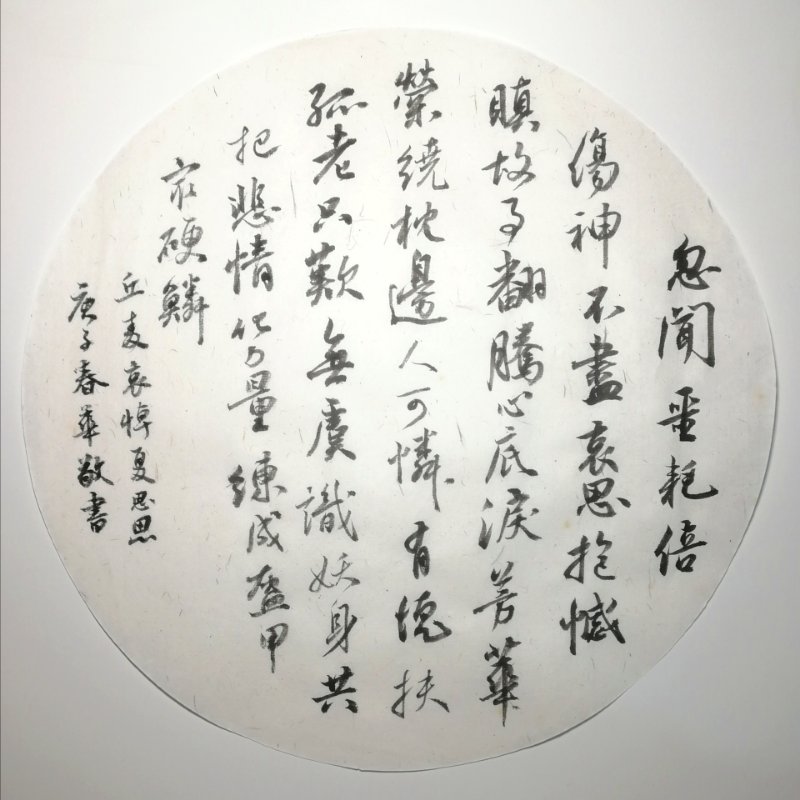 忽聞噩耗倍
傷神不盡哀思抱憾
瞋故事翻騰心底淚芳華
縈繞枕邊人可憐有愧扶
孤老只歎無虞識妖身共
把悲情化力量練成盔甲
硬鱗
丘麦哀悼夏思思
庚子春華敬書